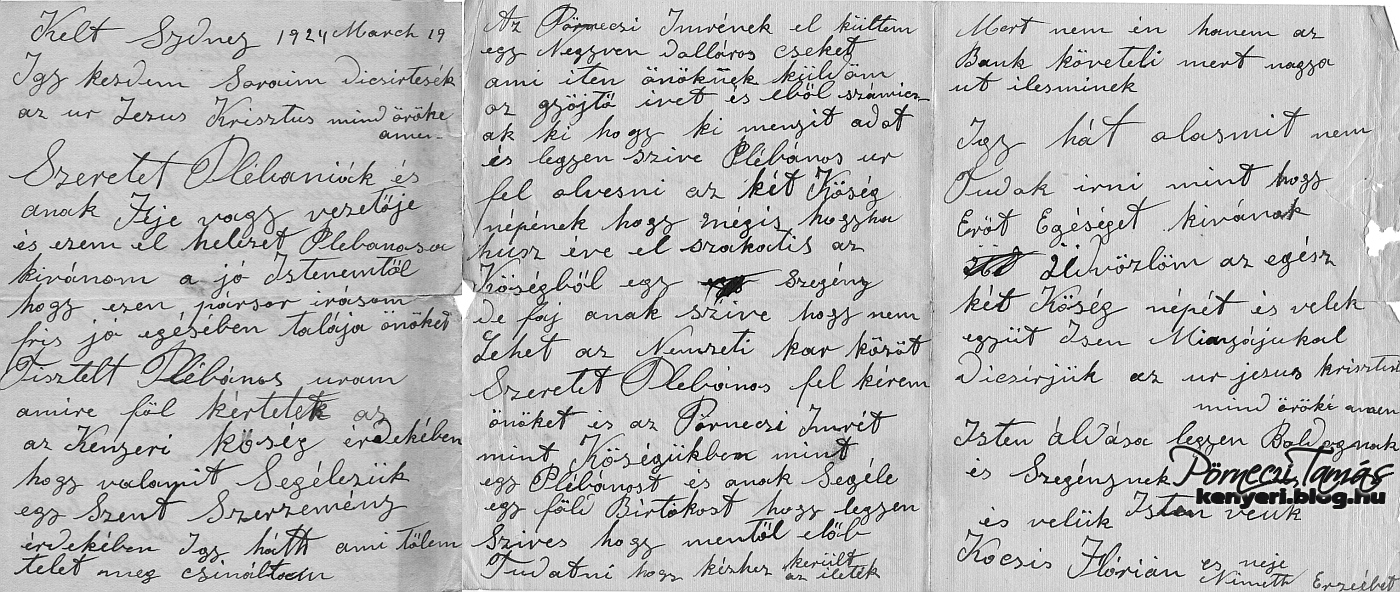 Kelt Sydney 1924 March 19
Igy kezdem Soraim dicsirtesék
az ur Jezus Krisztus mind öröke
amen
Szeretet Plébaniák és
anak Feje vagy vezetöje
és ezem el helezet Plebanosa
kivánom a jó Istenemtöl
hogy ezen pársor irásom
fris jó egésében talája önöket
Tisztelt Plébános uram
amire föl kértetek az
az Kenyeri köség érdekében
hogy valamit Segélezük
egy Szent Szerzemény
érdekében Igy háth ami tölem
telet meg csináltam
Az Pörneczi Imrének el kültem
egy Negyven dalláros cseket
ami iten önöknek küldöm
az gyöjtö ivet és eböl számicz-
ak ki hogy ki menyit adot
és legyen szive Plébános ur
fel olvesni az két Köség
népének hogy mégis hogyha
husz éve el szakatis az
Köségböl egy szegény
de faj anak szive hogy nem
Lehet az Nemzeti kar között
Szeretet Plébános fel kérem
önöket és az Pörneczi Imrét
mint Köségükben mint
egy Plébánost és anak Segéle
egy föld Birtokost hogy legyen
Szives hogy mentöl elöb
Tudatni hogy kézhez került
az ileték
Mert nem én hanem az
Bank követeli mert nagya
ut ilesminek
Igy hát olasmit nem
Tudak irni mint hogy
Eröt Egéséget kivánok
Üdvözlöm az egész
két Köség népét és velek
együt Isen Miazájukal
Dicsirjük az ur jezus krisztust
mind öröké amen
Isten áldása legyen Boldognak
és Szegénynek
Pörneczi Tamás
kenyeri.blog.hu
és velük Isten velük
Kocsis Flórián es neje
Németh Erzsébet